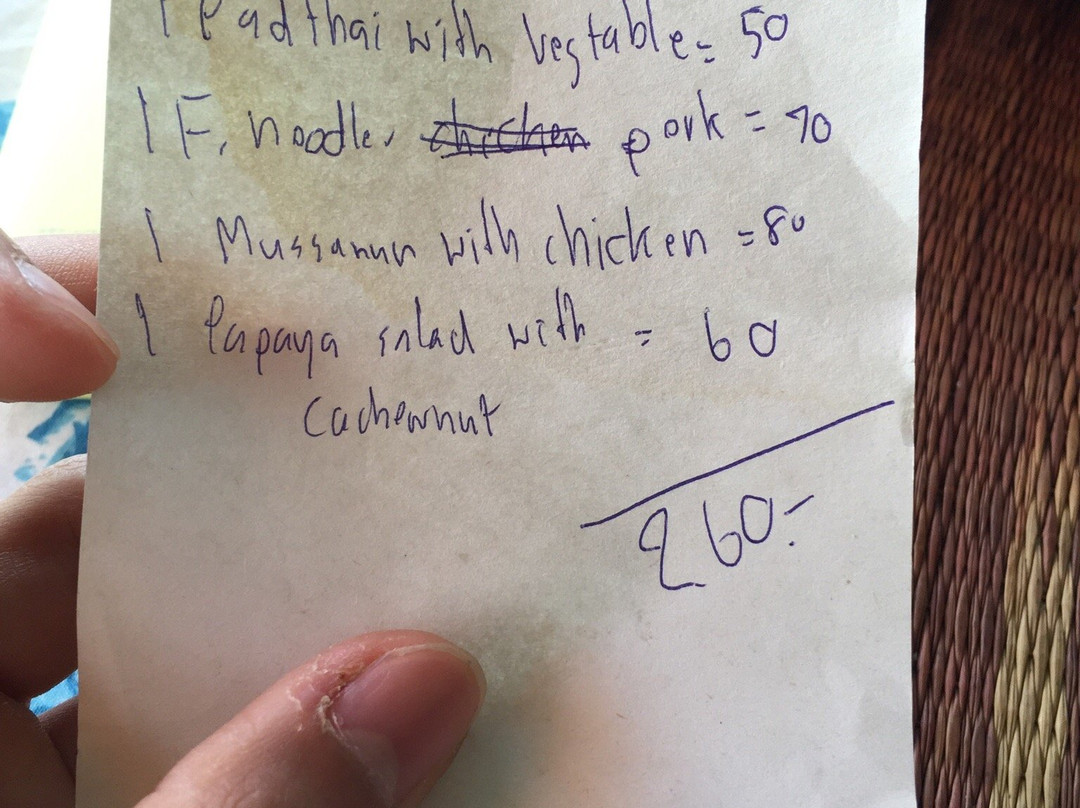 1 Padthai with Vegtable = 50
1 F, noodle, chicken pork = 70
1 Mussanun with chicken = 80
1 Papaya salad with = 60
Cachewnut
260.-